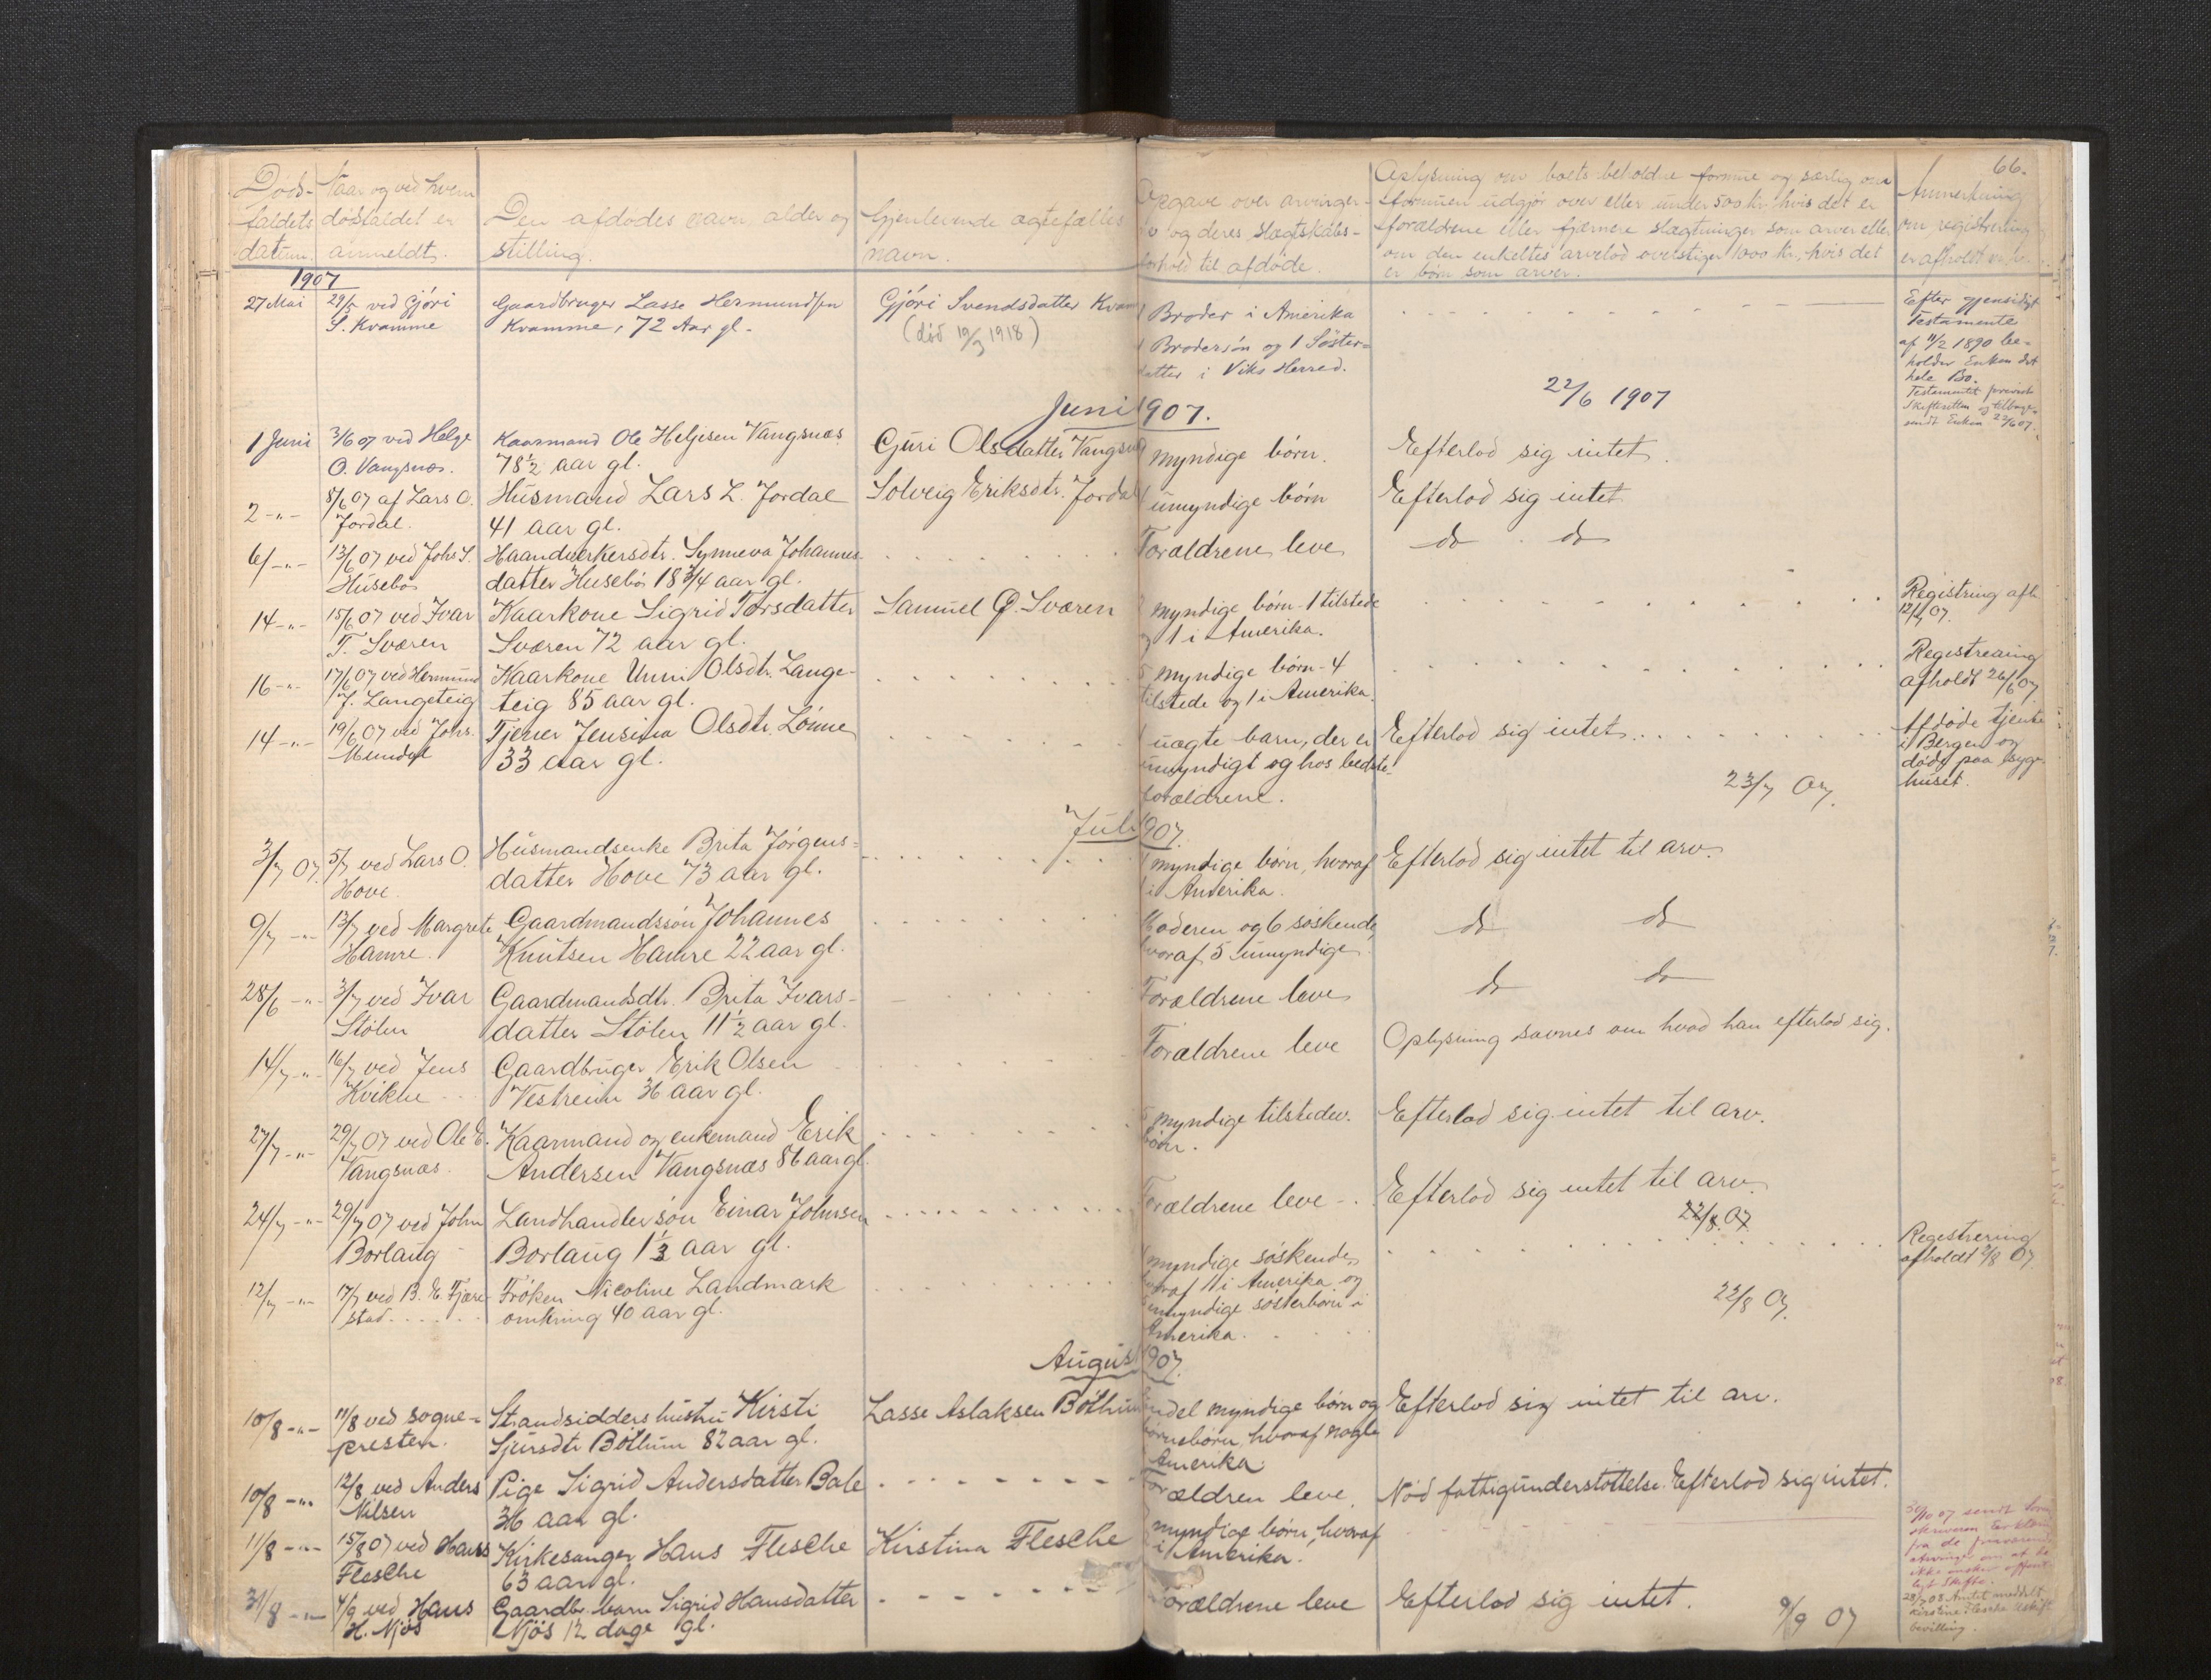 66.
Døds-
faldets
datum.
Naar og ved hvem
dødsfaldet er
anmeldt.
Den afdødes navn, alder og
stilling.
Gjenlevende ægtefælles
navn.
Opgave over arvinger-
og deres slægtskabs-
forhold til afdøde.
Oplysning om boets beholdne formue og særlig om
formuen udgjør over eller under 500 kr. hvis det er
forældrene eller fjærnere slægtninger som arver eller
om den enkeltes arvelod overstiger 1000 kr., hvis det
er børn som arver.
Anmerkning
om registrering
er afholdt
1907
27 Mai
29/5 ved Gjøri
S. Kvamme
Gaardbruger Lasse Hermundsen
Kvamme, 72 Aar gl.
Gjøri Svendsdatter Kvam
(død 19/3 1918)
1 Broder i Amerika
1 Brodersøn og 1 Søster-
datter i Viks Herred.
22/6 1907
Efter gjensidigt
Testamente
af 11/2 1890 be-
holder Enken det
hele Bo.
Testamentet
Skifteretten og tilbage-
sendt Enken 22/6 07.
Juni 1907.
1 Juni
3/6 07 ved Helge
O. Vangsnes.
Kaarmand Ole Heljesen Vangsnæs
78 1/2 aar gl.
Guri Olsdatter Vangsn
myndige børn.
Efterlod sig intet.
2 -"-
8/6 07 af Lars O.
Jordal.
Husmand Lars L. Jordal
41 aar gl.
Solveig Eriksdtr. Jordal
umyndige børn
Efterlod sig intet
6/ -"-
13/6 07 ved Johs S.
Husebø
Haandverkersdtr. Synneva Johannes-
datter Husebø 18 3/4 aar gl.
Forældrene leve
do . do
14 -"-
15/6 07 ved Ivar
T. Sværen
Kaarkone Sigrid Torsdatter
Sværen 72 aar gl.
Samuel O. Sværen
myndige børn - 1 tilstede
og 1 i Amerika.
Registring afh.
12/7 07.
16 -"-
17/6 07 ved Hermund
J. Langeteig
Kaarkone Unni Olsdtr. Lange-
teig 85 aar gl.
5 myndige børn - 4
tilstede og 1 i Amerika.
Registreaing
afholdt 26/6 07
14 -"-
19/6 07 ved Johs.
Mundal
Tjener Jensina Olsdtr. Lønne
33 aar gl.
1 uægte barn, der er
umyndigt og hos bedste-
forældrene.
Efterlod sig intet
23/7 07.
Afdøde tjente
i Bergen og
døde paa syge-
huset.
Juli 1907.
3/7 07.
5/7 ved Lars O.
Hove.
Husmandsenke Brita Jørgens-
datter Hove 73 aar gl.
myndige børn, hvoraf
i Amerika.
Efterlod sig intet til arv.
9/7 -"-
13/7 ved Margrete
Hamre.
Gaardmandssøn Johannes
Knutsen Hamre 22 aar gl.
Moderen og 6 søskende,
hvoraf 5 umyndige
do do
28/6 -"-
3/7 ved Ivar
Stølen
Gaardmandsdtr. Brita Ivars-
datter Stølen 11 1/2 aar gl.
Forældrene leve
do do
14/7 -"-
16/7 ved Jens
Kvikne
Gaardbruger Erik Olsen
Vestreim 36 aar gl.
Forældrene leve
Oplysning savnes om hvad han efterlod sig.
27/7 -"-
29/7 07 ved Ole E.
Vangsnæs.
Kaarmand og enkemand Erik
Andersen Vangsnæs 86 aar gl.
5 myndige tilstedev.
børn.
Efterlod sig intet til arv.
24/7 -"-
29/7 07 ved John
Borlaug
Landhandler søn Einar Johnsen
Borlaug 1 1/2 aar gl.
Forældrene leve -
Efterlod sig intet til arv.
22/8 07
12/7 -"-
17/7 ved B. E. Fjære-
stad
Frøken Nicoline Landmark
omkring 40 aar gl.
myndige søskende,
hvoraf 1 i Amerika og
umyndige søsterbørn i
Amerika.
22/8 07.
Registrering
afholdt 2/8 07
August 1907.
10/8 -"-
11/8 ved sogne-
presten.
Strandsidders hustru Kirsti
Sjursdtr Bøthum 82 aar gl.
Lasse Aslaksen Bøthum
Endel myndige børn og
børnebørn, hvoraf nogle
Amerika
Efterlod sig intet til arv.
10/8 -"-
12/8 ved Anders
Nilsen
Pige Sigrid Andersdatter Bale
36 aar gl.
Forældren leve.
Nød fattigunderstøttelse. Efterlod sig intet.
11/8 -"-
15/8 07 ved Hans
Flesche
Kirkesanger Hans Flesche
63 aar gl.
Kirstina Flesche
myndige børn, hvoraf
i Amerika.
30/10 07 sendt Soren-
skriveren Erklæring
fra de
Arvinger om at de
ikke ønsker offent-
ligt Skifte.
28/7 08 Amtet meddelt
Kirstine Flesche Uskift-
bevilling.
31/8 -"-
4/9 ved Hans
H. Njøs
Gaardbr. barn Sigrid Hansdatter
Njøs 12 dage gl.
Forældrene leve
Efterlod sig intet.
9/9 07